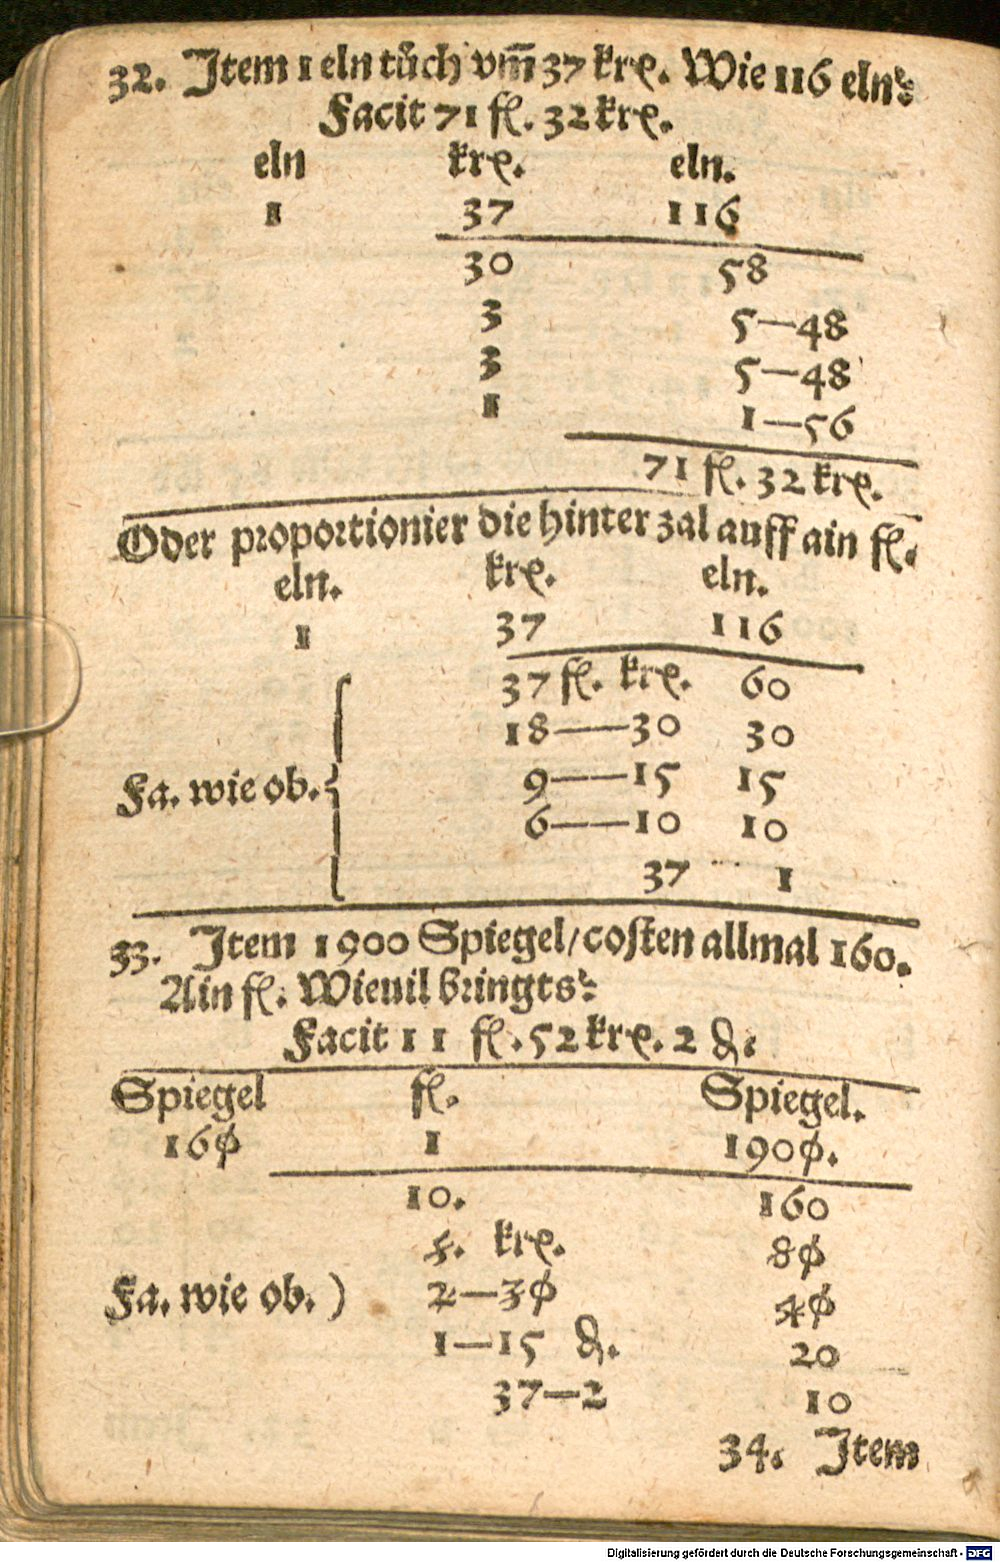 32. Item 1 eln tůch vm̃ 37 krę. Wie 116 eln?
Facit 71 fl. 32 krę.
eln krę. eln.
1 37 116
30 58
3 5—48
3 5—48
1 1—56
71 fl. 32 krę.
Oder proportionier die hinter zal auff ain fl.
eln. krę. eln.
1 37 116
37 fl. krę. 60
18—30 30
9—15 15
Fa. wie ob.
6—10 10
37 1
33. Item 1900 Spiegel/ costen allmal 160.
Ain fl. Wieuil bringts?
Facit 11 fl. 52 krę. 2 ₰.
Spiegel fl. Spiegel.
160 1 1900.
10. 160
5. krę. 80
Fa. wie ob. ) 2—30 40
1—15 ₰. 20
37—2 10
34. Item
Digitalisierung gefördert durch die Deutsche Forschungsgemeinschaft - DFG